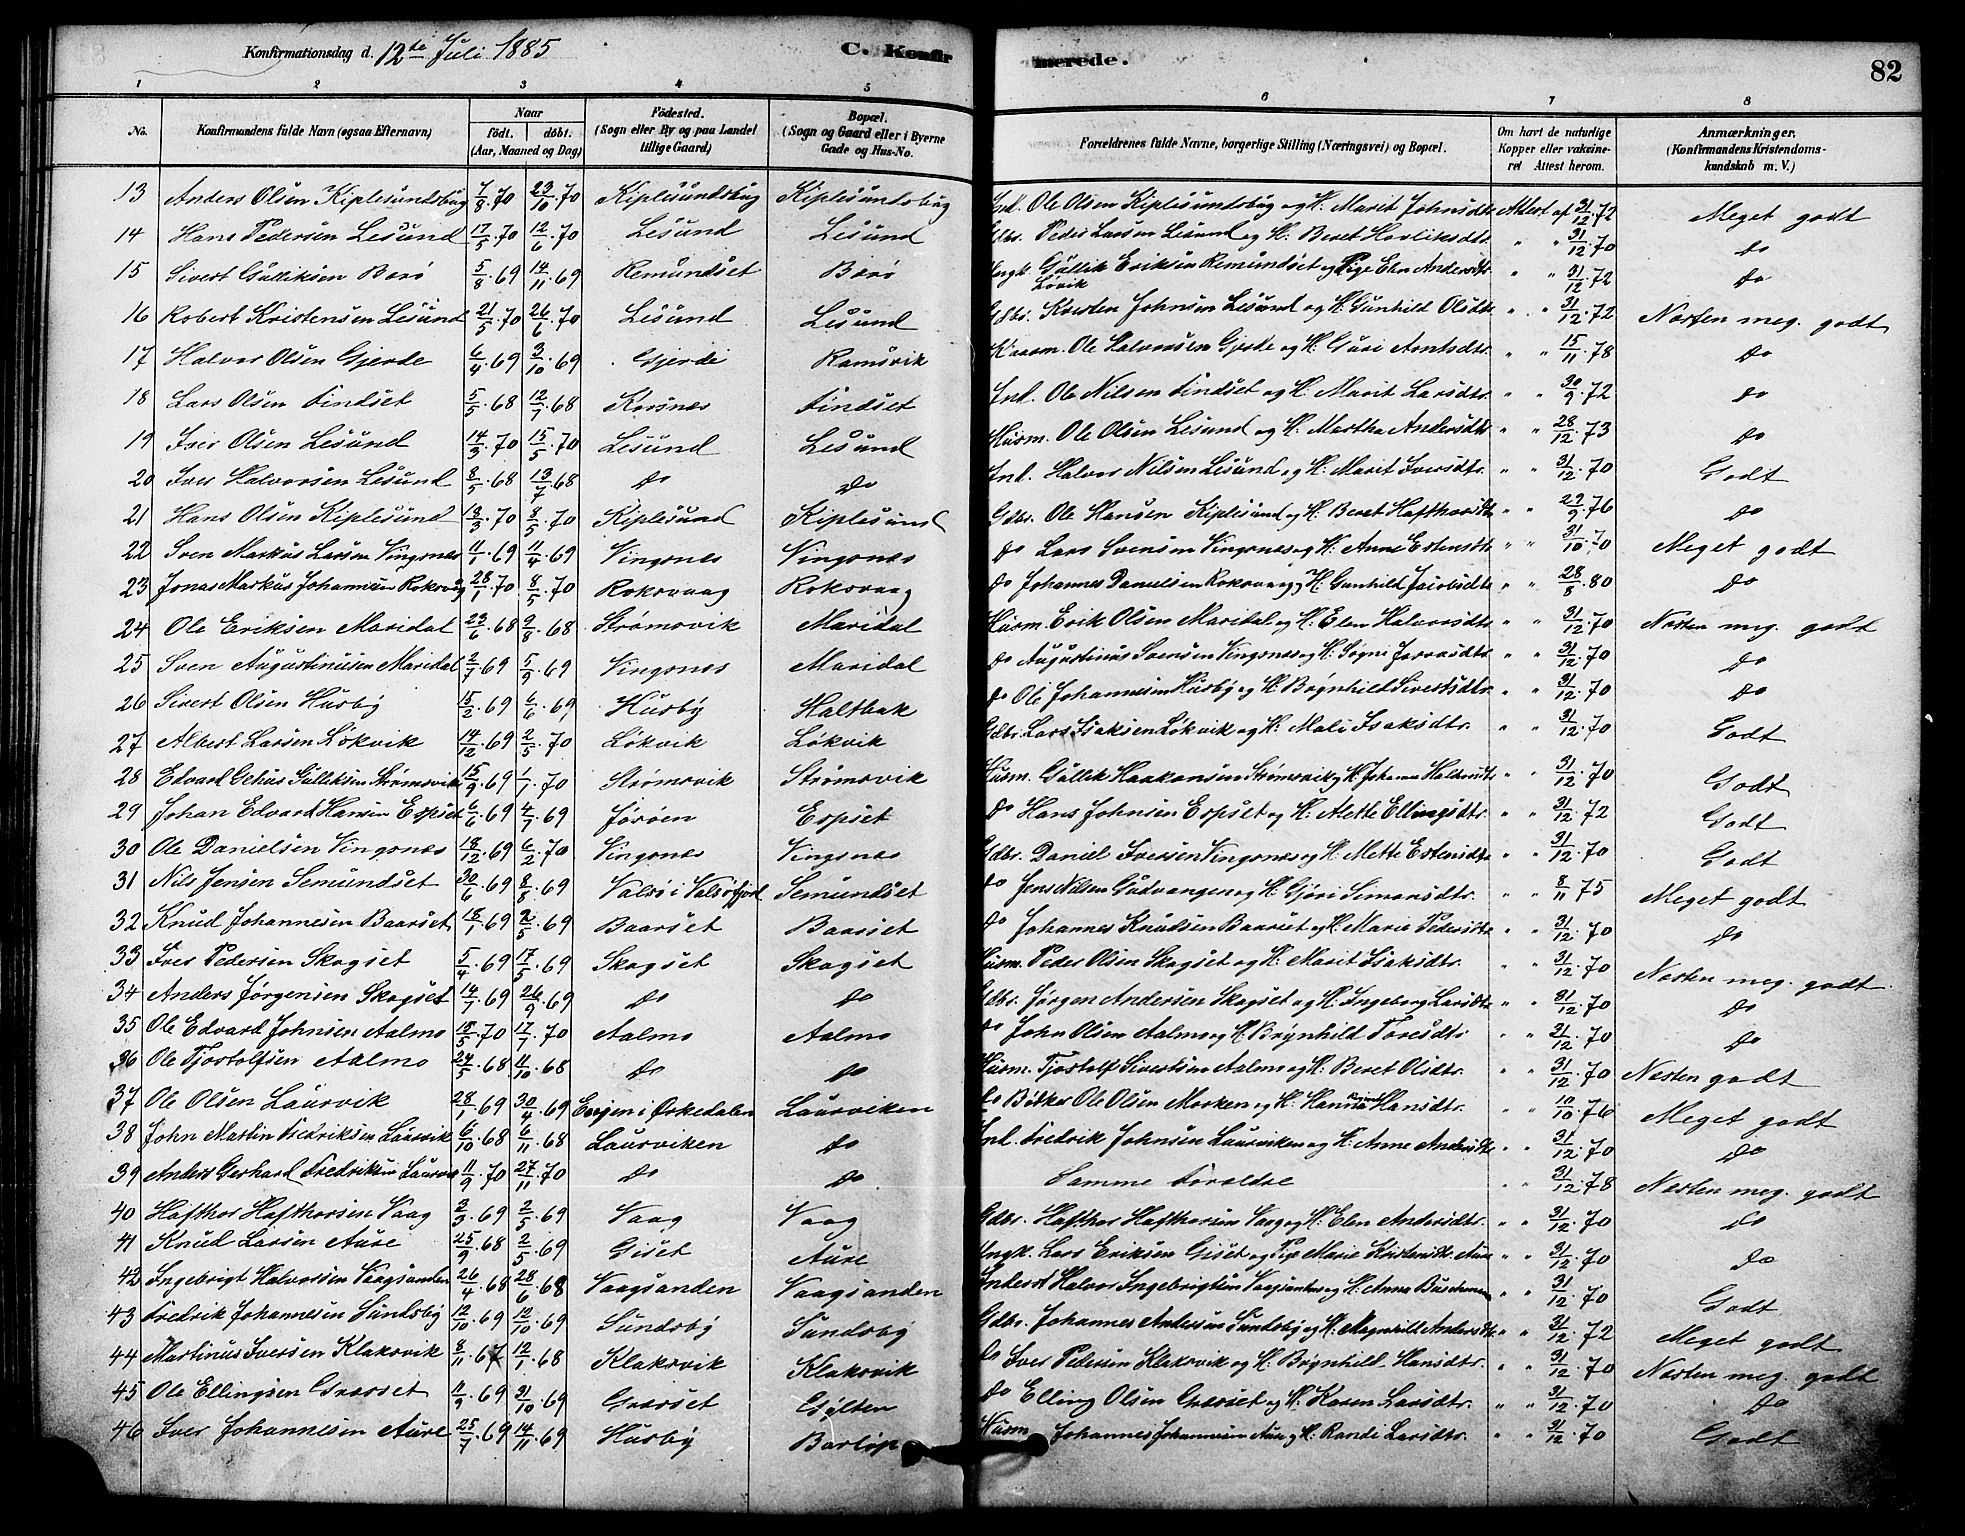 Konfirmationsdag d. 12te Juli 1885
C. Konfirmerede.
82
1 2 3 4 5 6 7 8
No. Konfirmandens fulde Navn (ogsaa Efternavn) Naar født. døbt. (Aar, Maaned og Dag) Fødested. (Sogn eller By og paa Landet tillige Gaard) Bopæl. (Sogn og Gaard eller i Byerne Gade og Hus-No. Forældrenes fulde Navne, borgerlige Stilling (Næringsvei) og Bopæl. Om havt de naturlige Kopper eller vaksineret Attest herom. Anmærkninger. (Konfirmandens Kristendomskundskab m. V.)
13 Anders Olsen Kiplesundsbug 7/8.70 23/10.70 Kiplesundsbug Kiplesundsbug Ind. Ole Olsen Kiplesundsbug og H. Marit Johnsdtr. Attest af 31/12.72 Meget godt
14 Hans Pedersen Lesund 17/5.70 12/6.70 Lesund Lesund Gdbr. Peder Larsen Lesund og H. Beret " " 31/12.70 do
15 Sivert Gulliksen Barø 5/8.69 14/11.69 Remundset Barø Ungk. Gullik Eriksen Remundset og Pige Elen Andersdtr. Løvik " " 31/12.72 do
16 Robert Kristensen Lesund 21/5.70 26/6.70 Lesund Lesund Gdbr. Kristen Johnsen Lesund og H. Gunhild Olsdtr " " 31/12.72 Næsten meg. godt
17 Halvor Olsen Gjerde 6/4.69 3/10.69 Gjerde Ramsvik Ole Halvorsen Gjerde og H. Guri Arntsdtr. " " 15/11.78 do
18 Lars Olsen Findset 5/5.68 12/7.68 Korsnes Findset Ind. Ole Nilsen Findset og H. Marit Larsdtr. " " 30/9.72 do
19 Iver Olsen Lesund 14/3.70 15/5.70 Lesund Lesund Husm. Ole Olsen Lesund og H. Martha Andersdtr " " 28/12.73 do
20 Iver Halvorsen Lesund 8/5.68 13/7.68 do do Ind. Halvor Nilsen Lesund og H. Marit Iversdtr. " " 31/12.70 Godt
21 Hans Olsen Kiplesund 13/3.70 8/5.70 Kiplesund Kiplesund Gdbr. Ole Hansen Kiplesund og H. Beret Hafthorsdtr " " 29/9.76 do
22 Sven Markus Larsen Vingsnes 11/1.69 11/4.69 Vingsnes Vingsnes do Lars Svensen Vingsnes og H. Anne Estensdtr " " 31/10.70 Meget godt
23 Jonas Markus Johannesen Roksvaag 28/1.70 8/5.70 Roksvaag Roksvaag do Johannes Danielsen Roksvaag og H. Gunhild Jacobsdtr " " 28/8.80 do
24 Ole Eriksen Maridal 23/6.68 9/8.68 Strømsvik Maridal Husm. Erik Olsen Maridal og H. Elen Halvorsdtr " " 31/12.70 Næsten meg. godt
25 Sven Augustinusen Maridal 2/7.69 5/9.69 Vingsnes Maridal do Augustinus Svensen Vingsnes og H. Signi " " 31/12.70 do
26 Sivert Olsen Husby 15/2.69 6/6.69 Husby Haltbak do Ole Johannesen Husby og H. Brynhild Sivertsdtr. " " 31/12.70 do
27 Albert Larsen Løkvik 14/12.69 2/5.70 Løkvik Løkvik Gdbr. Lars Isaksen Løkvik og H. Mali Isaksdtr. " " 31/12.70 Godt
28 Edvard Gulliksen Strømsvik 15/9.69 1/1.70 Strømsvik Strømsvik Husm. Gullik Haakonsen Strømsvik og H. Johanna " " 31/12.70 Godt
29 Johan Edvard Hansen Espset 6/6.69 4/7.69 Jøröen Espset do Hans Johnsen Espset og H. Alette Ellingsdtr. " " 31/12.72 Godt
30 Ole Danielsen Vingsnes 18/12.69 6/2.70 Vingsnes Vingsnes Gdbr. Daniel Iversen Vingsnes og H. Mette Estensdtr " " 31/12.70 Godt
31 Nils Jensen Semundset 30/6.69 8/8.69 Valsø i Valsøfjord Semundset do Jens Nilsen Gudvangen og H. Gjøri Simonsdtr. " " 8/11.75 Meget godt
32 Knud Johannesen Baarset 18/1.69 2/5.69 Baarset Baarset do Johannes Knudsen Baarset og H. Marie Pedersdtr " " 31/12.70 do
33 Iver Pedersen Skogset 5/4.69 17/5.69 Skogset Skogset Husm. Peder Olsen Skogset og H. Marit Isaksdtr. " " 31/12.70 Næsten meg. godt
34 Anders Jørgensen Skogset 14/7.69 26/9.69 do do Gdbr. Jørgen Andersen Skogset og H. Ingeborg Larsdtr " " 31/12.70 do
35 Ole Edvard Johnsen Aalmo 18/5.70 17/7.70 Aalmo Aalmo do John Olsen Aalmo og H. Brynhild Toresdtr " " 31/12.70 do
36 Ole Tjostolfsen Aalmo 24/5.68 11/10.68 do do Husm. Tjostolf Sivertsen Aalmo og H. Beret Olsdtr. " " 31/12.70 Næsten godt
37 Ole Olsen Laurvik 28/1.69 30/4.69 Evjen i Orkedalen Laurviken do Bødker Ole Olsen Morken og H. Hanna Hansdtr. " " 10/10.76 Meget godt
38 John Martin Fredriksen Laurvik 6/10.68 6/11.68 Laurviken do Ind. Fredrik Johnsen Laurviken og H. Anne Andersdtr " " 31/12.70 do
39 Anders Gerhard Fredriksen Laurvik 11/9.70 27/11.70 do do Samme Foreldre " " 31/12.78 Næsten meg. godt
40 Hafthor Hafthorsen Vaag 2/3.69 2/5.69 Vaag Vaag Gdbr. Hafthor Hafthorsen Vaag og H. Elen Andersdtr. " " 31/12.70 do
41 Knud Larsen Aure 25/9.68 2/5.69 Giset Aure Ungk. Lars Eriksen Giset og Pige Marie Kristensdtr. Aure " " 31/12.70 do
42 Ingebrigt Halvorsen Vaagsanden 26/4.68 28/6.68 Vaagsanden Vaagsanden Inderst Halvor Ingebrigtsen Vaagsanden og H. Anna " " 31/12.70 Godt
43 Fredrik Johannesen Sundsby 12/10.69 12/10.69 Sundsby Sundsby Gdbr. Johannes Andersen Sundsby og H. Magnhild Andersdtr " " 31/12.72 Meget godt
44 Martinus Iversen Klaksvik 8/11.67 12/1.68 Klaksvik Klaksvik do Iver Pedersen Klaksvik og H. Brynhild Hansdtr. " " 31/12.70 Næsten meg. godt
45 Ole Ellingsen Græsset 11/9.69 31/10.69 Græsset Gylten do Elling Olsen Græsset og H. Karen Larsdtr. " " 31/12.70 do
46 Iver Johannesen Aure 25/7.69 14/11.69 Husby Husm. Johannes Johannesen Aure og H. Randi Larsdtr. " " 31/12.70 Godt